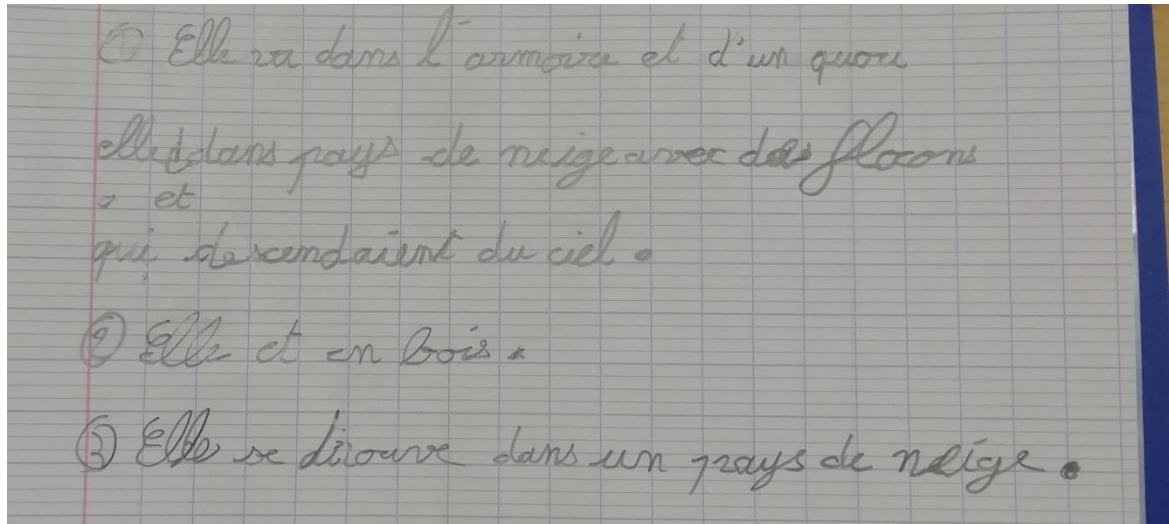 ① Elle va dans l'armoire et d'un quou
elle t dans pays de neige avec des flocons
, et
qui descendaient du ciel.
② Elle et en bois.
③ Elle se dirouve dans un pays de neige.